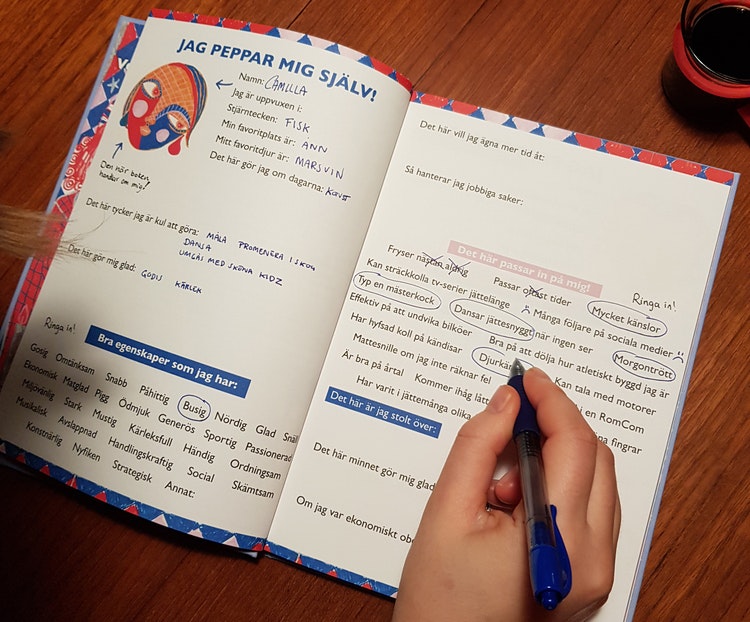 JAG PEPPAR MIG SJÄLV!
Namn: CAMILLA
Jag är uppvuxen i:
Stjärntecken: FISK
Min favoritplats är: ANN
Mitt favoritdjur är: MARSVIN
Det här gör jag om dagarna:
Den här boken
handlar om mig!
Det här tycker jag är kul att göra: MÅLA PROMENERA I SKOG
DANSA
UMGÅS MED SKÖNA KIDZ
Det här gör mig glad: GODIS KÄRLEK
Ringa in!
Bra egenskaper som jag har:
Gosig Omtänksam Snabb Påhittig Busig Nördig Glad Snäl
Ekonomisk Matglad Pigg Ödmjuk Generös Sportig Passionerad
Miljövänlig Stark Mustig Kärleksfull Händig Ordningsam
Musikalisk Avslappnad Handlingskraftig Social Skämtsam
Konstnärlig Nyfiken Strategisk Annat:
Det här vill jag ägna mer tid åt:
Så hanterar jag jobbiga saker:
Det här passar in på mig!
Ringa in!
Fryser nästan aldrig Passar oftast tider Mycket känslor
Kan sträckkolla tv-serier jättelänge Många följare på sociala medier
Typ en mästerkock Dansar jättesnyggt när ingen ser Morgontrött
Effektiv på att undvika bilköer Bra på att dölja hur atletiskt byggd jag är
Har hyfsad koll på kändisar Djurkär Kan tala med motorer
Mattesnille om jag inte räknar fel i en RomCom
Är bra på årtal Kommer ihåg låt na fingrar
Har varit i jättemånga olika
Det här är jag stolt över:
Det här minnet gör mig glad
Om jag var ekonomiskt obe